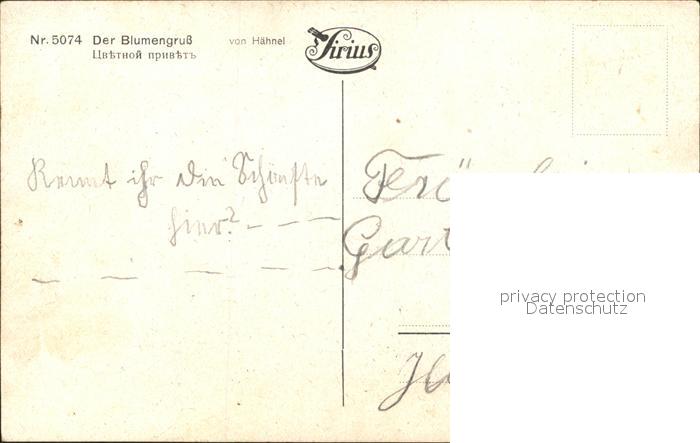 Nr. 5074 Der Blumengruß von Hähnel
Цвѣтной привѣтъ
Sirius
Kennt ihr die Schönste
hier? - - -
Gart
privacy protection
Datenschutz